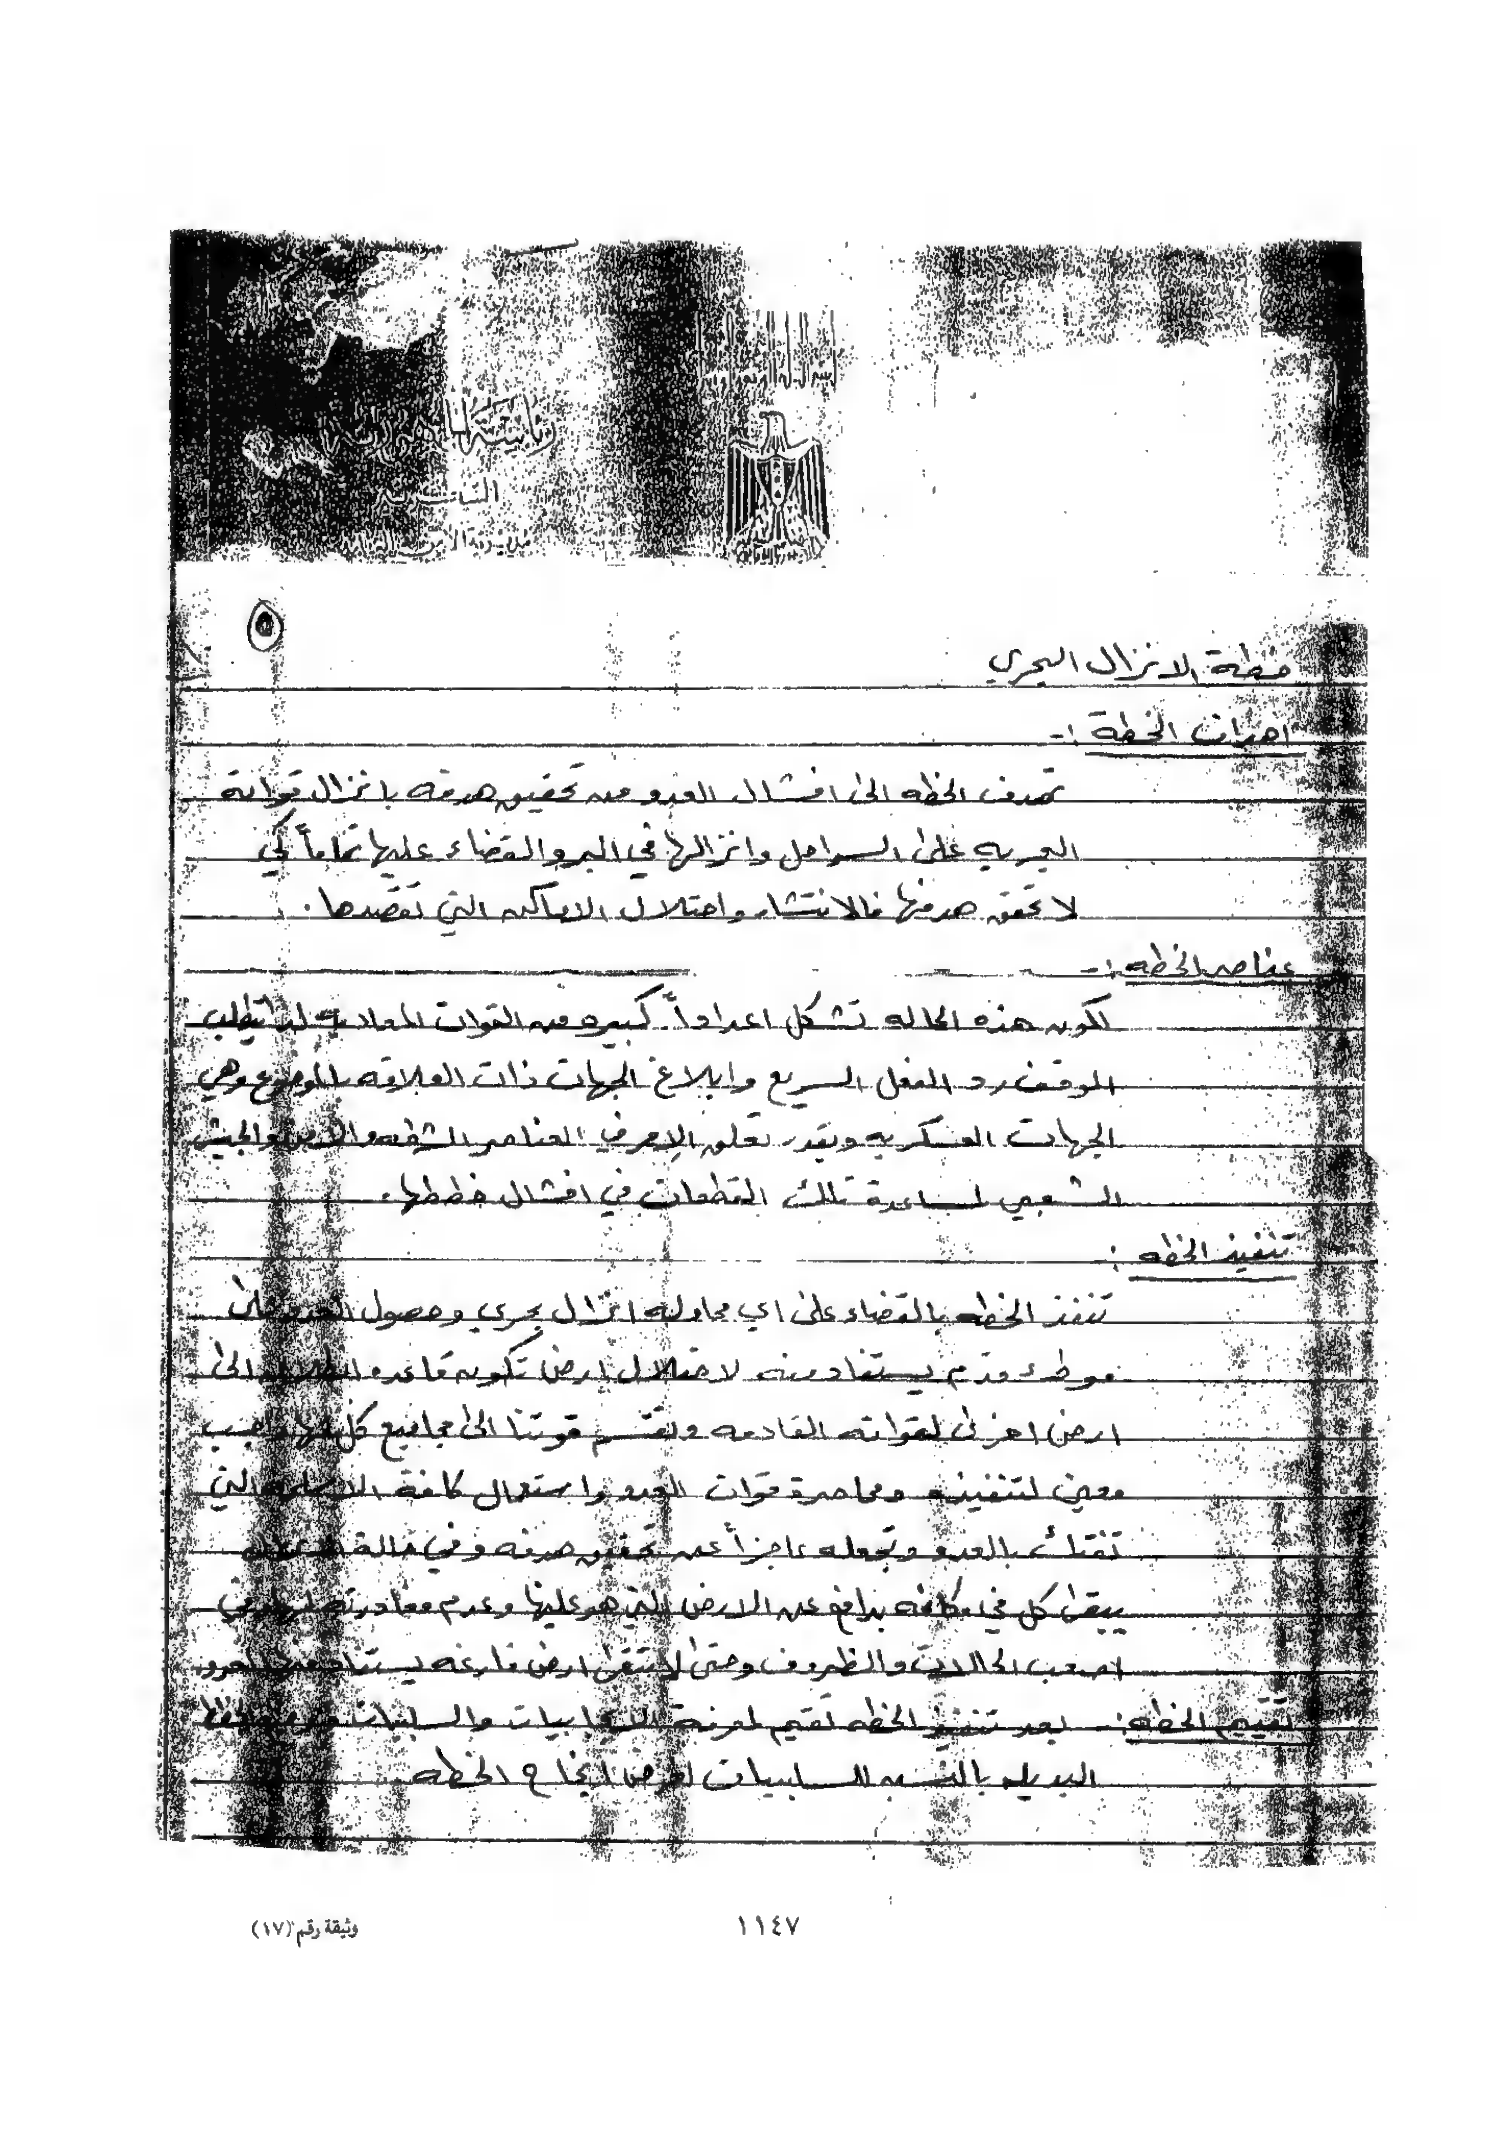 رئاسة
٥
خطة الانزال البحري
اهداف الخطة :-
تهدف الخطه الى افشال العدو من تحقيق هدفه بانزال قواته
البحريه على السواحل وانزالها في البر والقضاء عليها تماماً لكي
لا تحقق هدفها فالانتشار واحتلال الاماكن التي تقصدها .
عناصر الخطه :-
لكون هذه الحاله تشكل اعداداً كبيره من القوات المعاديه لذا يتطلب
الموقف رد الفعل السريع وابلاغ الجهات ذات العلاقه بالموضوع وهي
الجهات العسكريه وبقدر تعلق الامر في العناصر الشرطه والامن والجيش
الشعبي لمساعدة تلك القطعات في افشال خططها .
تنفيذ الخطه :
تنفذ الخطه بالقضاء على اي محاوله انزال بحري وحصول العدو على
موطىء قدم يستفاد منه لاحتلال ارض تكون قاعده انطلاق الى
ارض اخرى لقواته القادمه وتقسم قوتنا الى مجاميع كل لها واجب
معين لتنفيذه ومحاصرة قوات العدو واستعمال كافة الاسلحه التي
تفتك بالعدو وتجعله عاجزاً عن تحقيق هدفه وفي حالة
يبقى كل في مكانه يدافع عن الارض التي هو عليها وعدم مغادرته لها وفي
اصعب الحالات والظروف وحتى لا تبقى ارض فارغه يستفاد منها العدو
تقييم الخطه :- بعد تنفيذ الخطه تقيم لمعرفة الايجابيات والسلبيات
البديله بالنسبه للسلبيات لغرض انجاح الخطه
١١٤٧
وثيقة رقم (١٧)